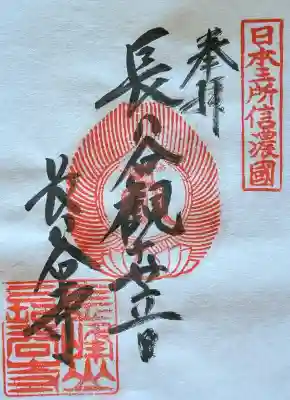 奉拝
日本三所信濃國
長谷観世音
長谷寺